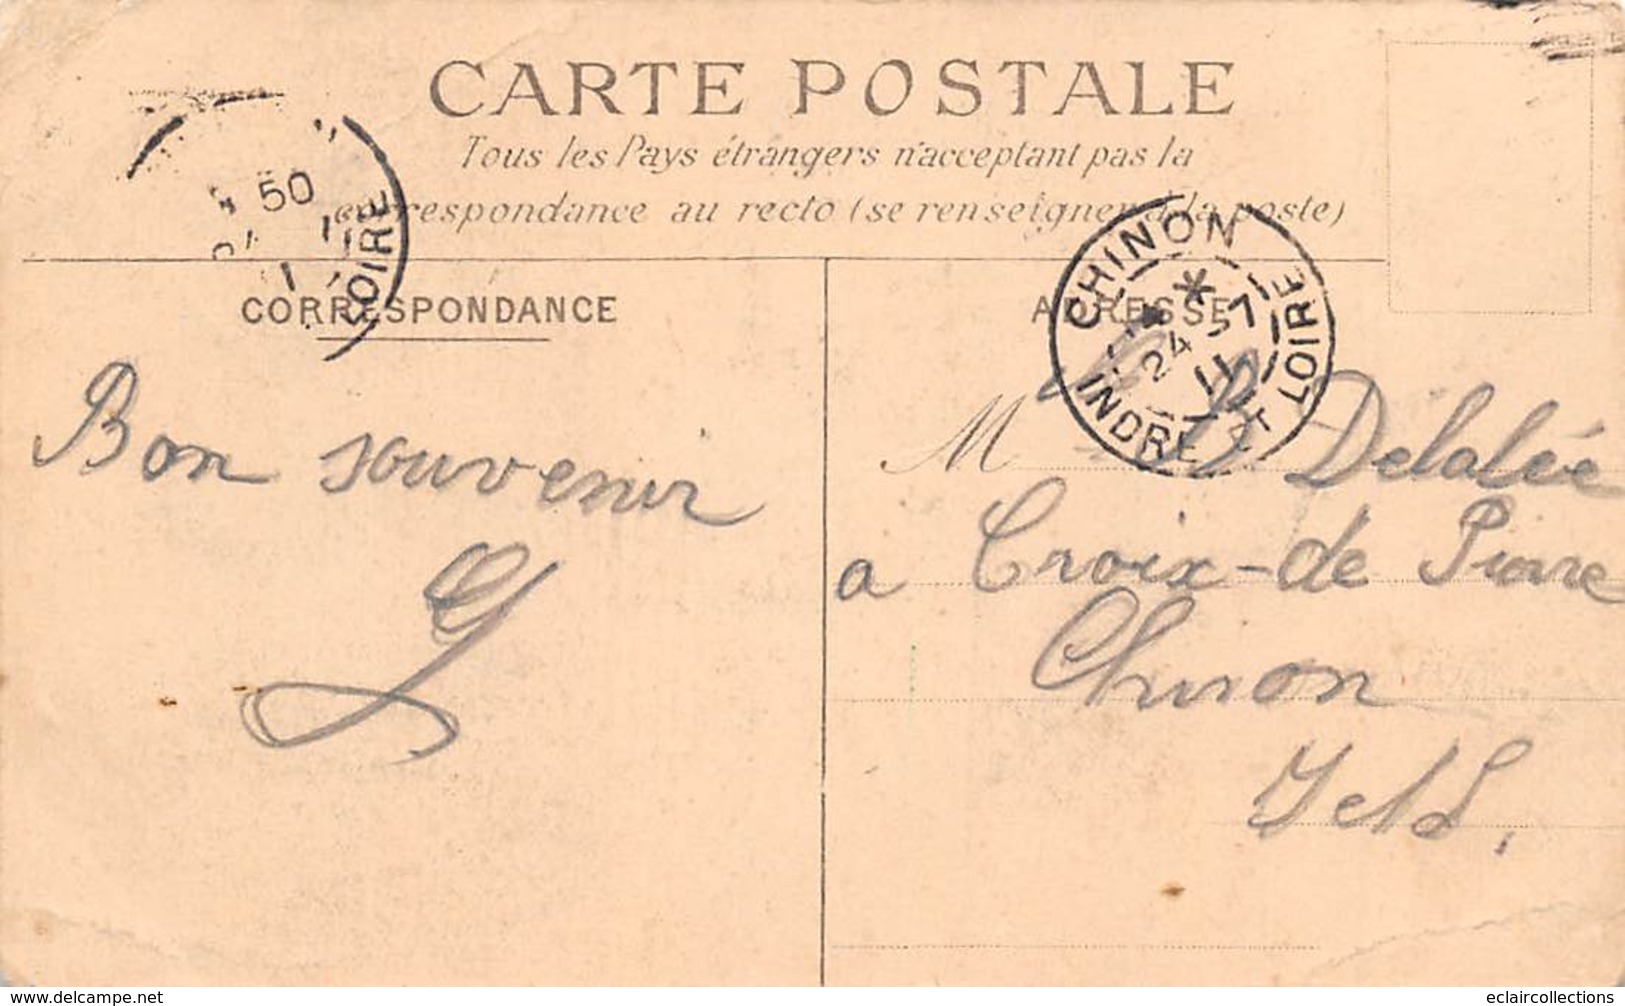 CARTE POSTALE
Tous les Pays étrangers n'acceptant pas la
correspondance au recto (se renseigner à la poste)
50
LOIRE
CORRESPONDANCE
ADRESSE
CHINON
24 - 7
11
INDRE ET LOIRE
Bon souvenir
M Delalée
a Croix-de Pierre
Chinon
I et L.
www.delcampe.net
eclaircollections